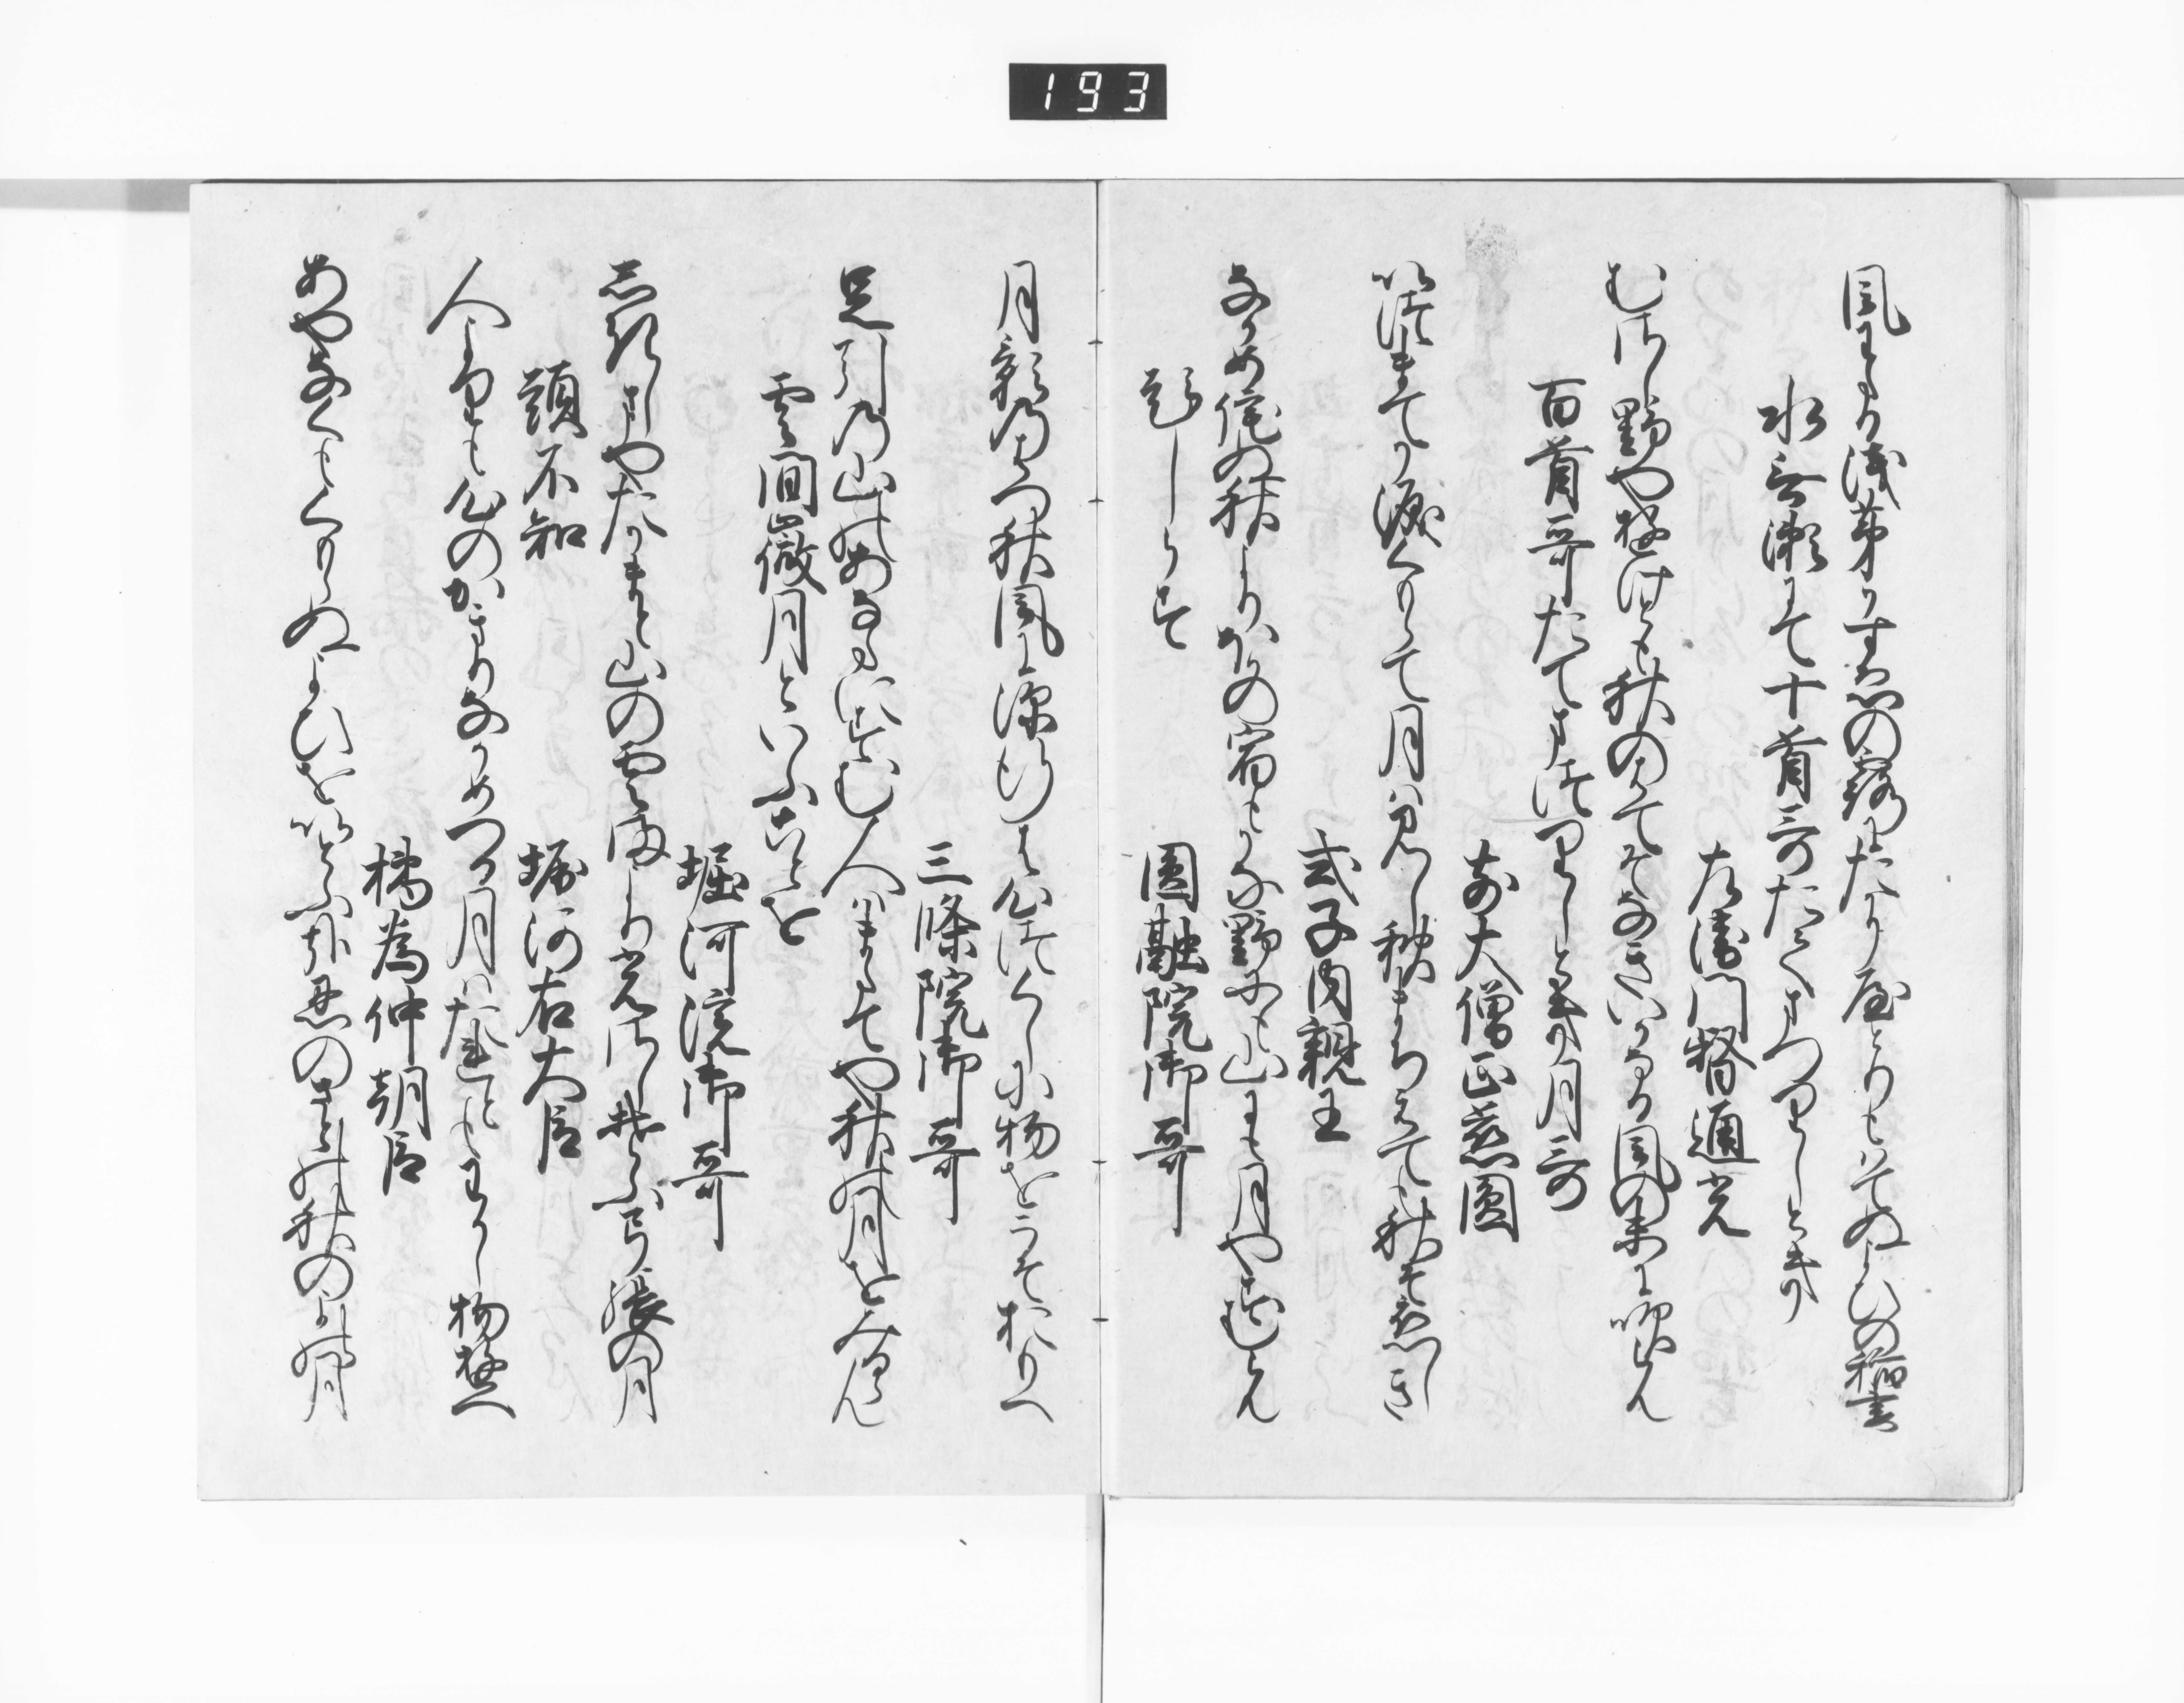 193
風わたる浅茅かすゑの露にたにやとりもはてぬよひの稲妻
水無瀬にて十首哥たてまつりしとき
左衛門督通光
むさし野やゆけとも秋のはてそなきいかなる風の末に吹らん
百首哥たてまつりしとき月哥
前大僧正慈圓
いつまてか涙くもらて月は見し秋まちえても秋そ恋しき
式子内親王
なかめ侘ぬ秋よりほかの宿もかな野にも山にも月やすむらん
題しらす
圓融院御哥
月影の初秋風と深行は心つくしに物をこそおもへ
三條院御哥
足引の山のあなたにすむ人はまたてや秋の月をみるらん
雲間微月といふことを
堀河院御哥
しきしまやたかまと山の雲まよりひかりさしそふ弓張の月
題不知
堀河右大臣
人よりも心のかきりなかめつる月はたれともわかし物ゆへ
橘為仲朝臣
あやなくもくもらぬよひをいとふ哉忍の里の秋のよの月